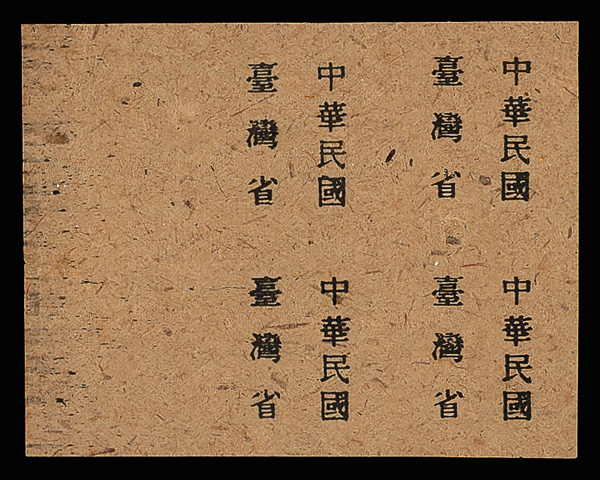 中華民國
臺灣省
中華民國
臺灣省
中華民國
臺灣省
中華民國
臺灣省